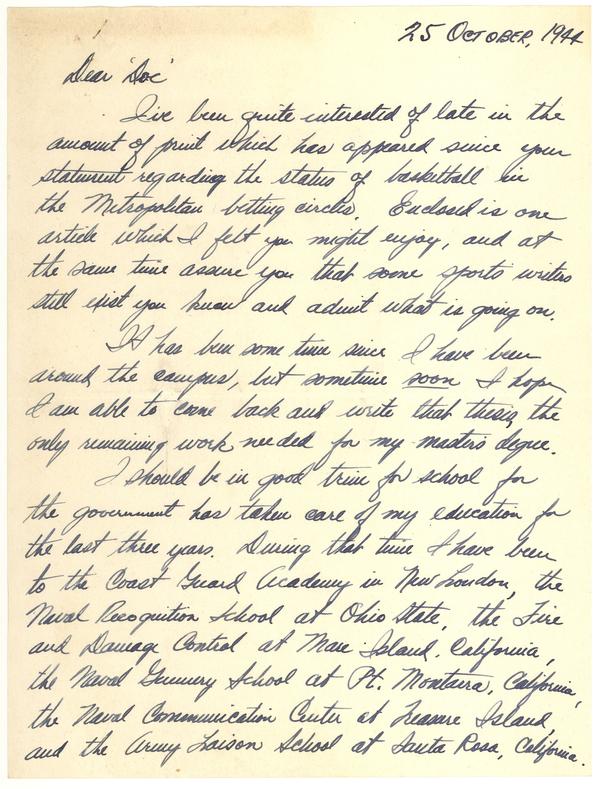 25 October, 1944
Dear 'Doc'
I've been quite interested of late in the
amount of print which has appeared since your
statement regarding the status of basketball in
the Metropolitan betting circles. Enclosed is one
article which I felt you might enjoy, and at
the same time assure you that some sports writers
still exist you know and admit what is going on.
It has been some time since I have been
around the campus, but sometime soon I hope
I am able to come back and write that thesis, the
only remaining work needed for my master's degree.
I should be in good trim for school for
the government has taken care of my education for
the last three years. During that time I have been
to the Coast Guard Academy in New London, the
Naval Recognition School at Ohio State, the Fire
and Damage Control at Mare Island, California,
the Naval Gunnery School at Pt. Montarra, California,
the Naval Communication Center at Treasure Island,
and the Army Liaison School at Santa Rosa, California.